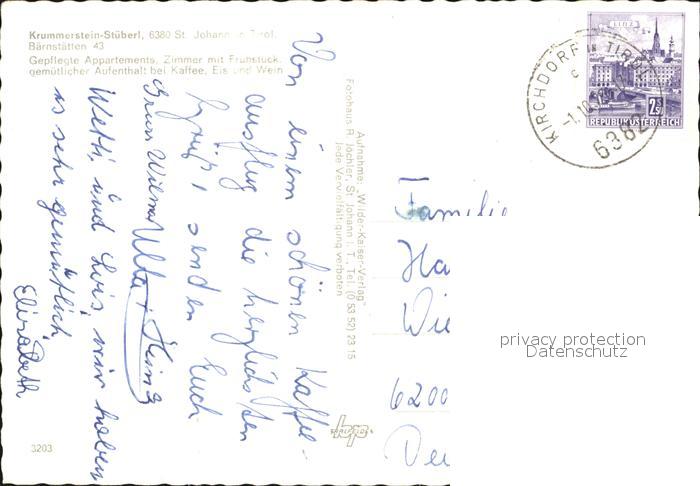 Krummerstein-Stüberl, 6380 St. Johann in Tirol,
Bärnstätten 43
Gepflegte Appartements, Zimmer mit Frühstück,
gemütlicher Aufenthalt bei Kaffee, Eis und Wein
Von einem schönen Kaffee-
ausflug die herzlichsten
Grüße senden Euch
Wilma Ulla + Heinz
Wetti, und Lois, wir haben
es sehr gemütlich
Elisabeth
Aufnahme: „Wilder-Kaiser-Verlag"
Fotohaus R. Jöchler, St. Johann i. T., Tel. (0 53 52) 23 15
Jede Vervielfältigung verboten
LINZ
2.50
REPUBLIK ÖSTERREICH
KIRCHDORF IN TIROL
6382
Familie
Ha
Wie
6200
privacy protection
Datenschutz
bp
3203